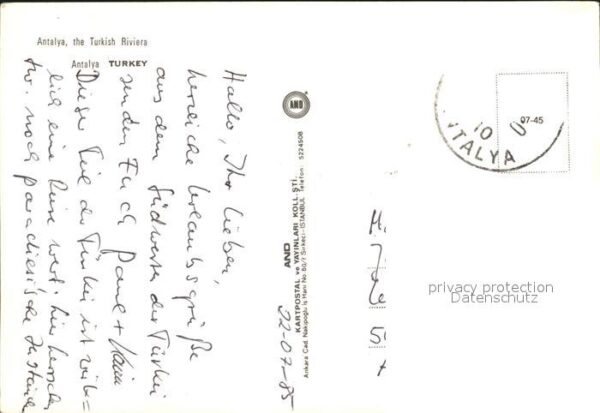 Antalya, the Turkish Riviera
Antalya TURKEY
Hallo, Ihr Lieben,
herzliche Urlaubsgrüße
aus dem Südwesten der Türkei
senden Euch Paul + 
Dieser Teil der Türkei ist wirk=
lich eine Reise wert, hier herrschen
tw. noch paradiesische Zustände
22-07-85
AND
AND
KARTPOSTAL ve YAYINLARI KOLL. ŞTİ.
Ankara Cad. Nakipoğlu İş Hanı No: 60/1 Sirkeci-İSTANBUL Telefon: 5224508
07-45
10
TALYA
privacy protection
Datenschutz